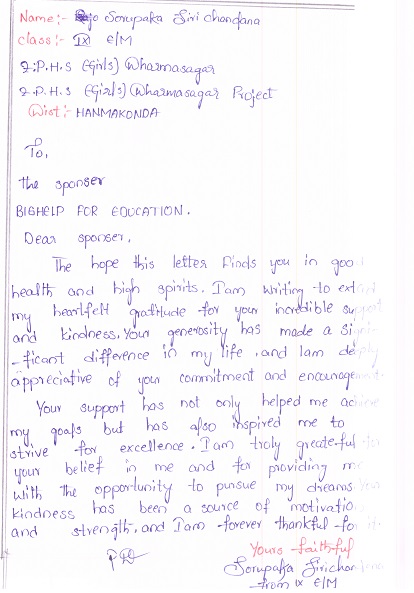 Name:- Sorupaka Siri Chandana
class:- IX E/M
Z.P.H.S (Girls) Dharmasagar
Z.P.H.S (Girls) Dharmasagar Project
Dist:- HANMAKONDA
To,
The sponser
BIGHELP FOR EDUCATION.
Dear sponser,
The hope this letter finds you in good
health and high spirits. I am writing to extend
my heartfelt gratitude for your incredible support
and kindness. Your generosity has made a signi-
-ficant difference in my life, and I am deeply
appreciative of your commitment and encouragement.
Your support has not only helped me achieve
my goals but has also inspired me to
strive for excellence. I am truly greateful for
your belief in me and for providing me
with the opportunity to pursue my dreams. Your
kindness has been a source of motivation
and strength, and I am forever thankful for it.
Yours faithful
Sorupaka Sirichandana
from IX E/M